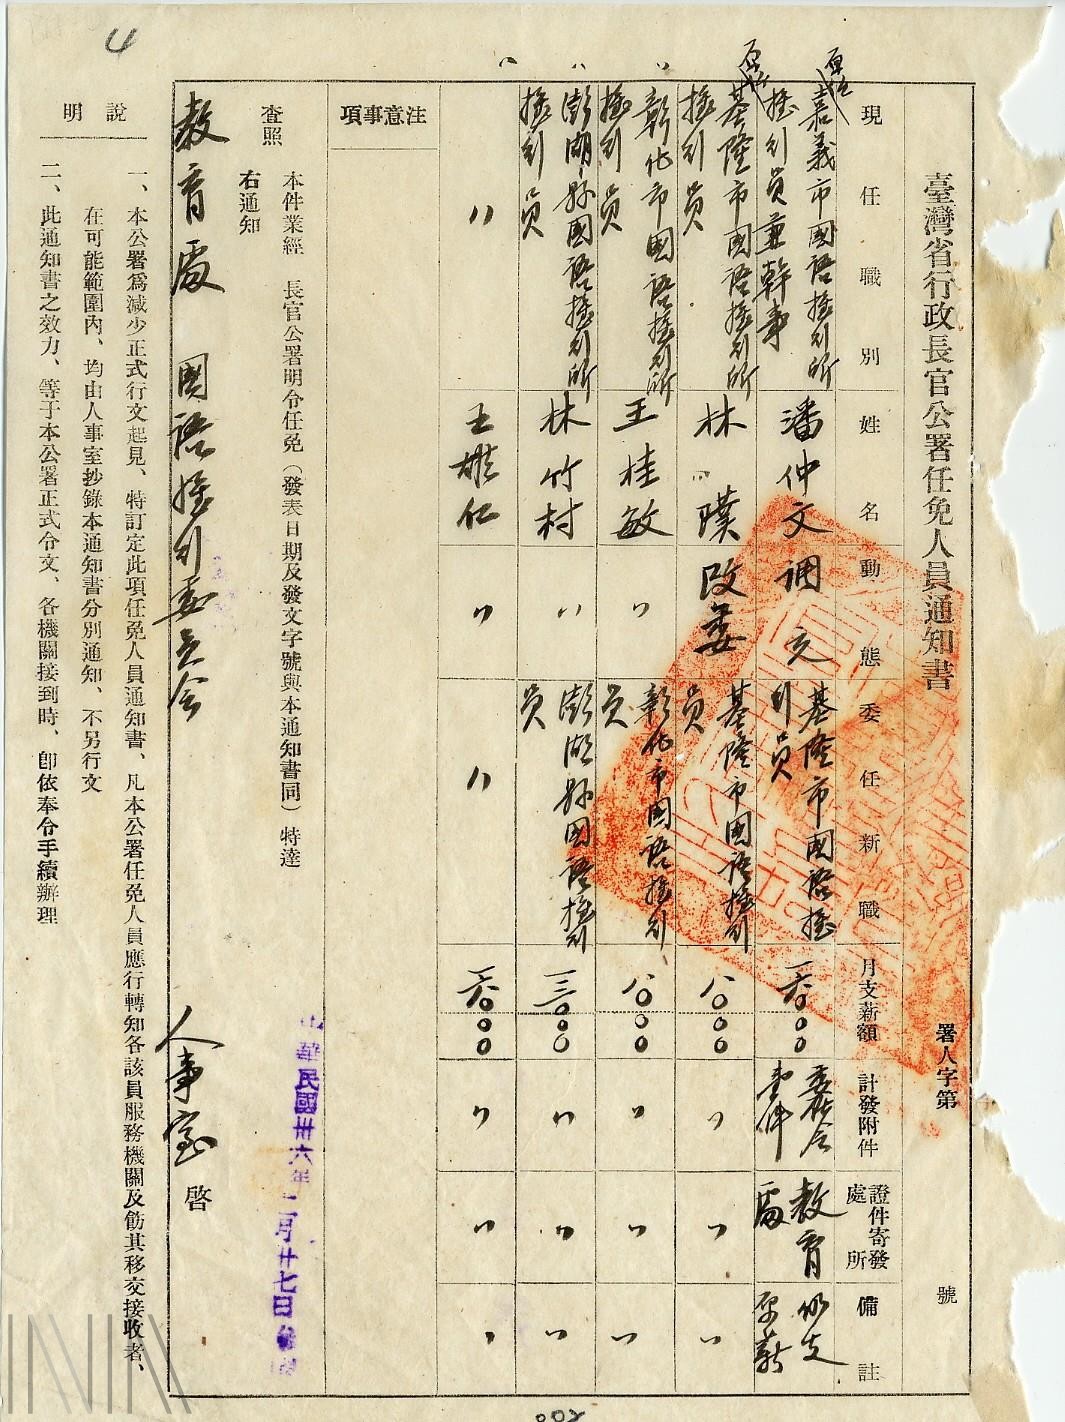 4
臺灣省行政長官公署任免人員通知書
署人字第
號
現任職別
姓名
動態
委任新職
月支薪額
計發附件
證件寄發處所
備註
嘉義市國語推行所
推行員兼幹事
潘仲文
調充
基隆市國語推
行員
委任令
壹件
教育
處
仍支
原薪
基隆市國語推行所
推行員
林璞
改委
基隆市國語推行
員
八〇〇〇
〃
〃
〃
彰化市國語推行所
推行員
王桂敏
〃
彰化市國語推行
員
八〇〇〇
〃
〃
〃
澎湖縣國語推行所
推行員
林竹村
〃
澎湖縣國語推行
員
〃
〃
〃
〃
〃
〃
〃
〃
〃
注意事項
本件業經　長官公署明令任免（發表日期及發文字號與本通知書同）特達
查照
右通知
教育處　國語推行委員會
人事室　啓
中華民國卅六年二月廿七日
說明
一、本公署爲減少正式行文起見、特訂定此項任免人員通知書、凡本公署任免人員應行轉知各該員服務機關及飭其移交接收者、
在可能範圍內、均由人事室抄錄本通知書分別通知、不另行文
二、此通知書之效力、等于本公署正式令文、各機關接到時、卽依奉令手續辦理
002